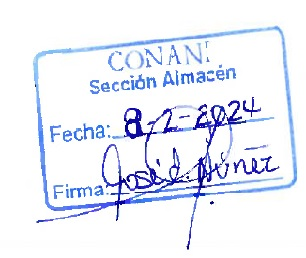 CONANI
Sección Almacén
Fecha: 8-2-2024
Firma: José d. Núñez